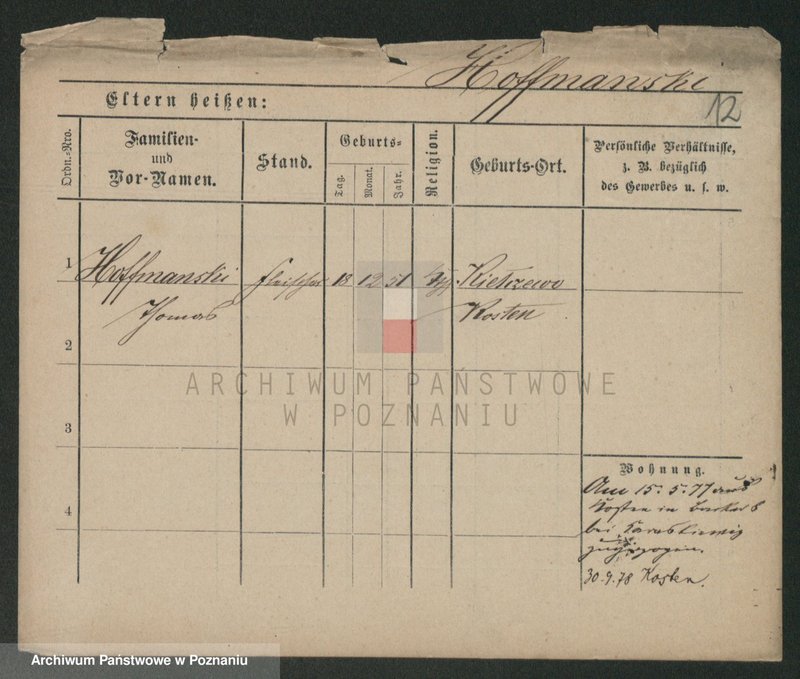 Hoffmanski
12
Eltern heißen:
Ordn.-Nro.
Familien-
und
Vor-Namen.
Stand.
Geburts-
Tag.
Monat.
Jahr.
Religion.
Geburts-Ort.
Persönliche Verhältnisse,
z. B. bezüglich
des Gewerbes u. s. w.
1
Hoffmanski Fleischer 18 12 51 Kielczewo
Thomas Kosten
2
ARCHIWUM PAŃSTWOWE
W POZNANIU
3
Wohnung.
Am 15. 5. 77 aus
Kosten in
bei
zugezogen.
30.9.78 Kosten.
4
Archiwum Państwowe w Poznaniu